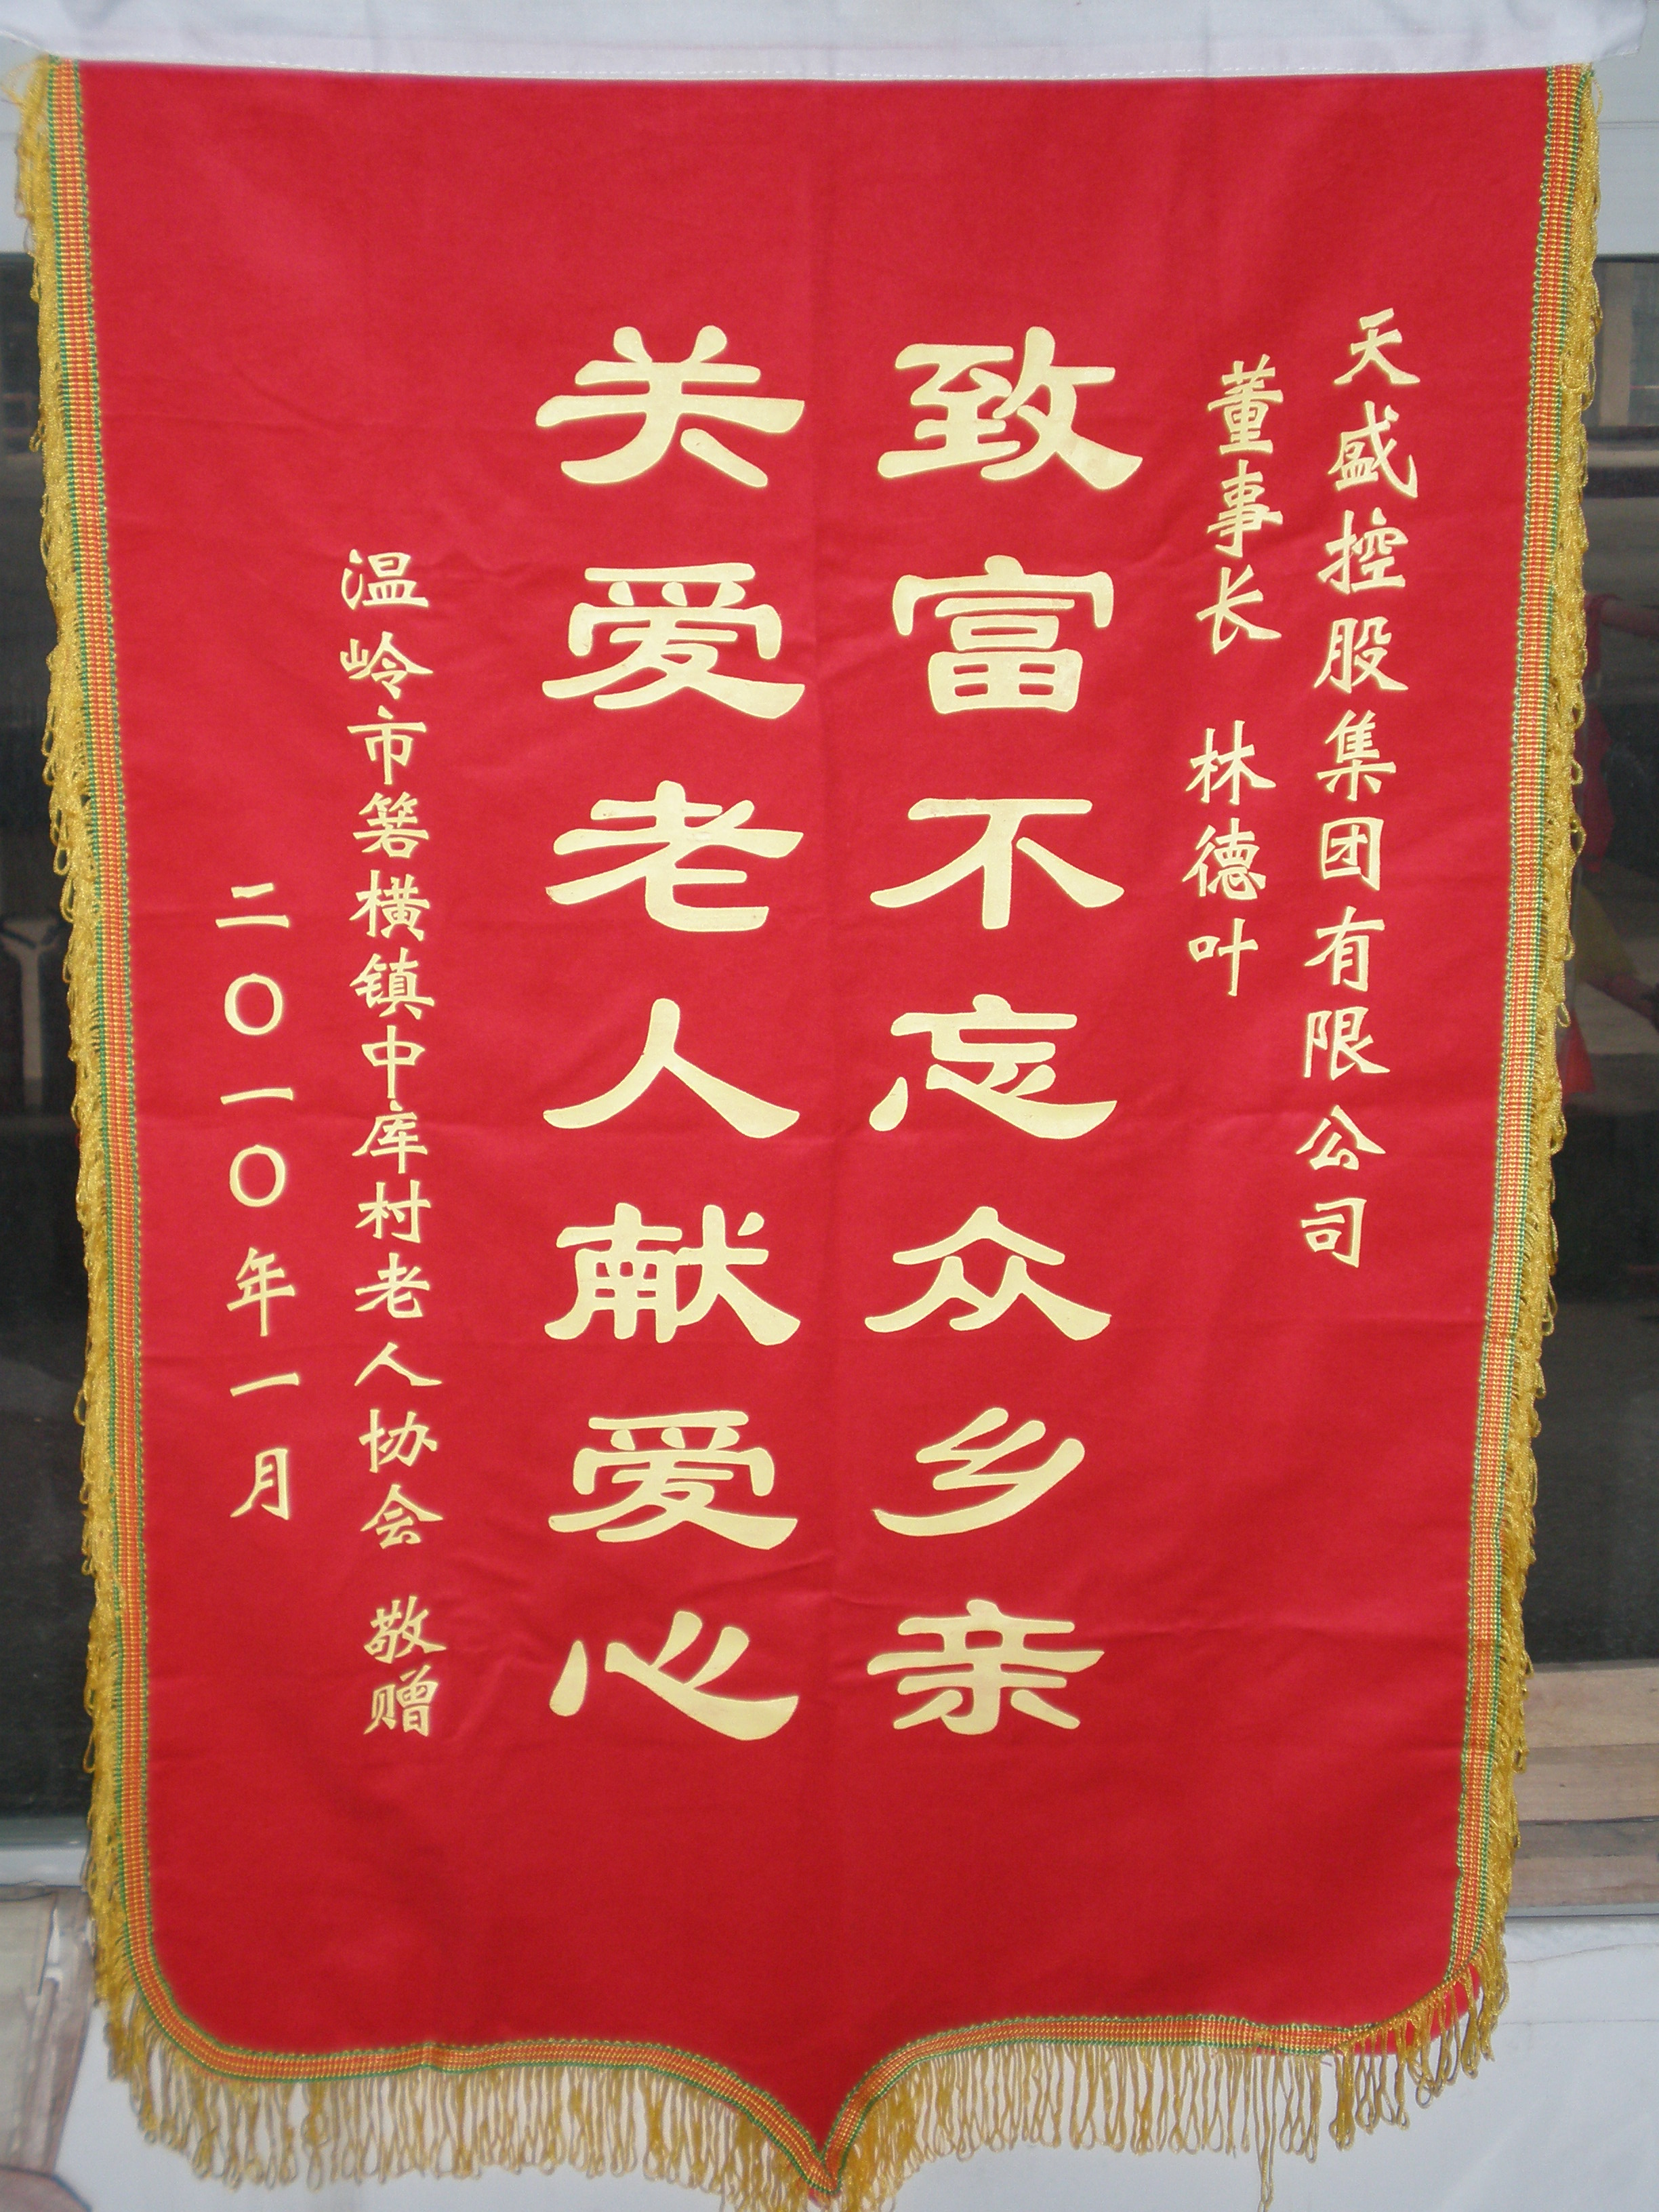 天盛控股集团有限公司
董事长 林德叶
致富不忘众乡亲
关爱老人献爱心
温岭市箬横镇中库村老人协会 敬赠
二〇一〇年一月